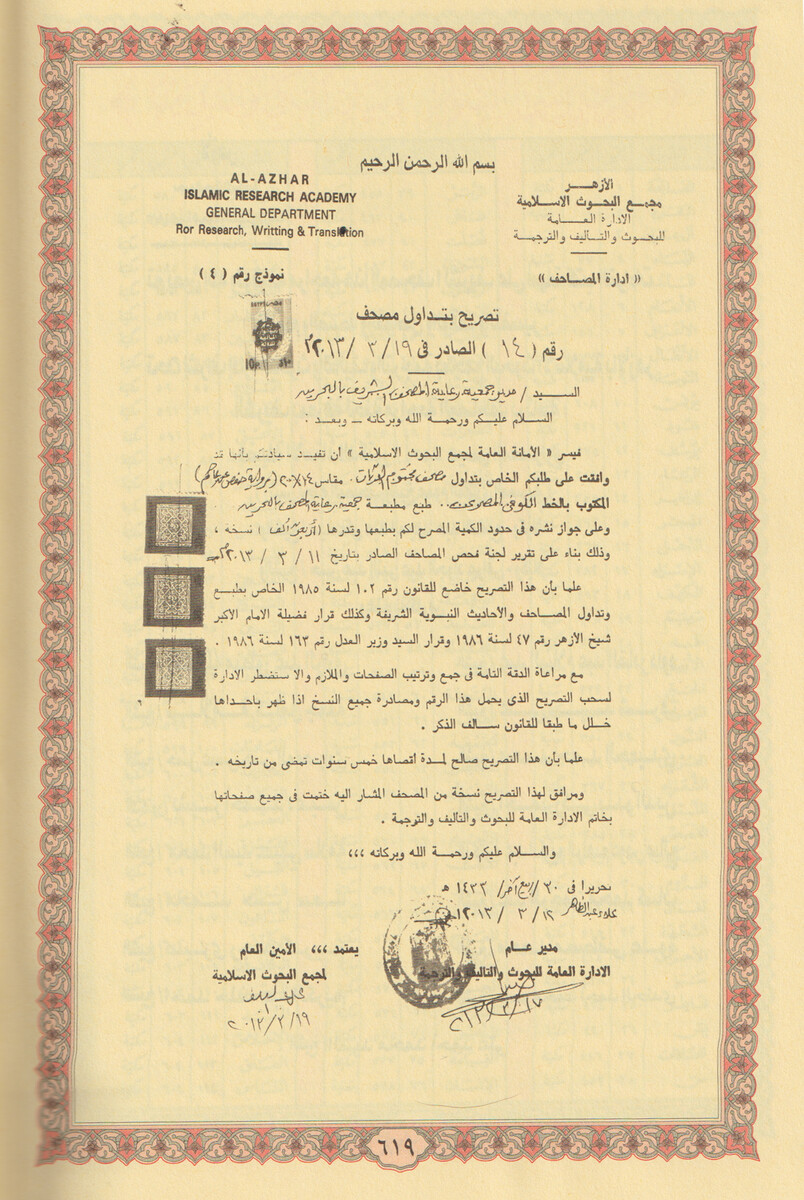 بسم الله الرحمن الرحيم
AL-AZHAR
ISLAMIC RESEARCH ACADEMY
GENERAL DEPARTMENT
Ror Research, Writting & Translation
الأزهـــر
مجمع البحوث الاسلامية
الادارة العـــامة
للبحوث والتـأليف والترجمـة
« ادارة المصـاحف »
نموذج رقم ( ٤ )
تصريح بتـداول مصحف
رقم ( ١٤ ) الصادر فى ١٩ / ٣ / ٢٠١٣م
الســـيد / مدير جمعية رعاية المصحف الشريف بالبحرين
السـلام عليـكم ورحمـة الله وبركاته ــ وبعـد :
فيسر « الأمانة العامة لمجمع البحوث الاسلامية » ان تفيـد سيادتكم بأنها قد
وافقت على طلبكم الخاص بتداول مصحف مقاس ١٤×٢٠ (برواية حفص عن عاصم)
المكتوب بالخط الكوفى .. طبع مطبعـة جمعية رعاية المصحف بالبحرين
وعلى جواز نشره فى حدود الكمية المصرح لكم بطبعها وقدرها ( أربعون ألف ) نسخة ،
وذلك بناء على تقرير لجنة فحص المصاحف الصادر بتاريخ ١١ / ٣ / ٢٠١٣م
علما بأن هذا التصريح خاضع للقانون رقم ١٠٢ لسنة ١٩٨٥ الخاص بطبـع
وتداول المصـاحف والأحاديث النبـوية الشريفة وكذلك قرار فضيلة الامام الاكبر
شيخ الأزهر رقم ٤٧ لسنة ١٩٨٦ وقرار السيد وزير العدل رقم ١٦٣ لسنة ١٩٨٦ .
مع مراعاة الدقة التامة فى جمع وترتيب الصفحات والملازم والا ستضطر الادارة
لسحب التصريح الذى يحمل هذا الرقم ومصادرة جميع النسخ اذا ظهر باحداها
خلـل ما طبقا للقانون سـالف الذكر .
علما بأن هذا التصريح صالح لمـدة أقصاها خمس سنوات تمضى من تاريخه .
ومرافق لهذا التصريح نسخة من المصحف المشار اليه ختمت فى جميع صفحاتها
بخاتم الادارة العامة للبحوث والتأليف والترجمة .
والسـلام عليكم ورحمـة الله وبركاته ،،،
تحريرا فى ٣٠ / ربيع آخر / ١٤٣٢ هـ
علاء عبد الظاهر ١٩ / ٣ / ٢٠١٣م
مدير عـام
الادارة العامة للبحوث والتأليف والترجمة
٢٠١٣/٣/١٧
يعتمد ،،، الأمين العام
لمجمع البحوث الاسلامية
٢٠١٣/٣/١٩
٦١٩